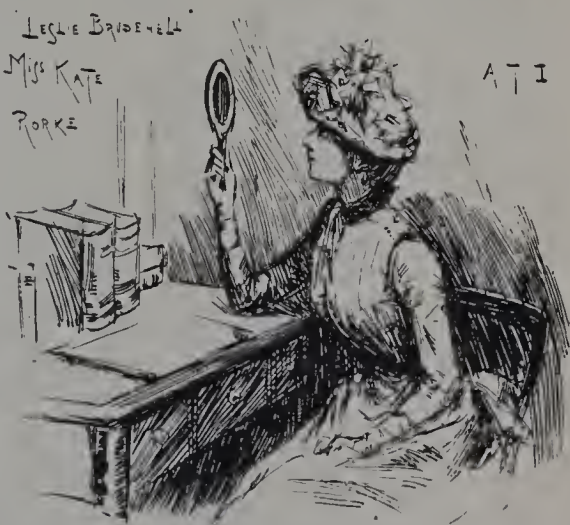 "LESLIE BRUDENELL"
MISS KATE
RORKE
ACT I